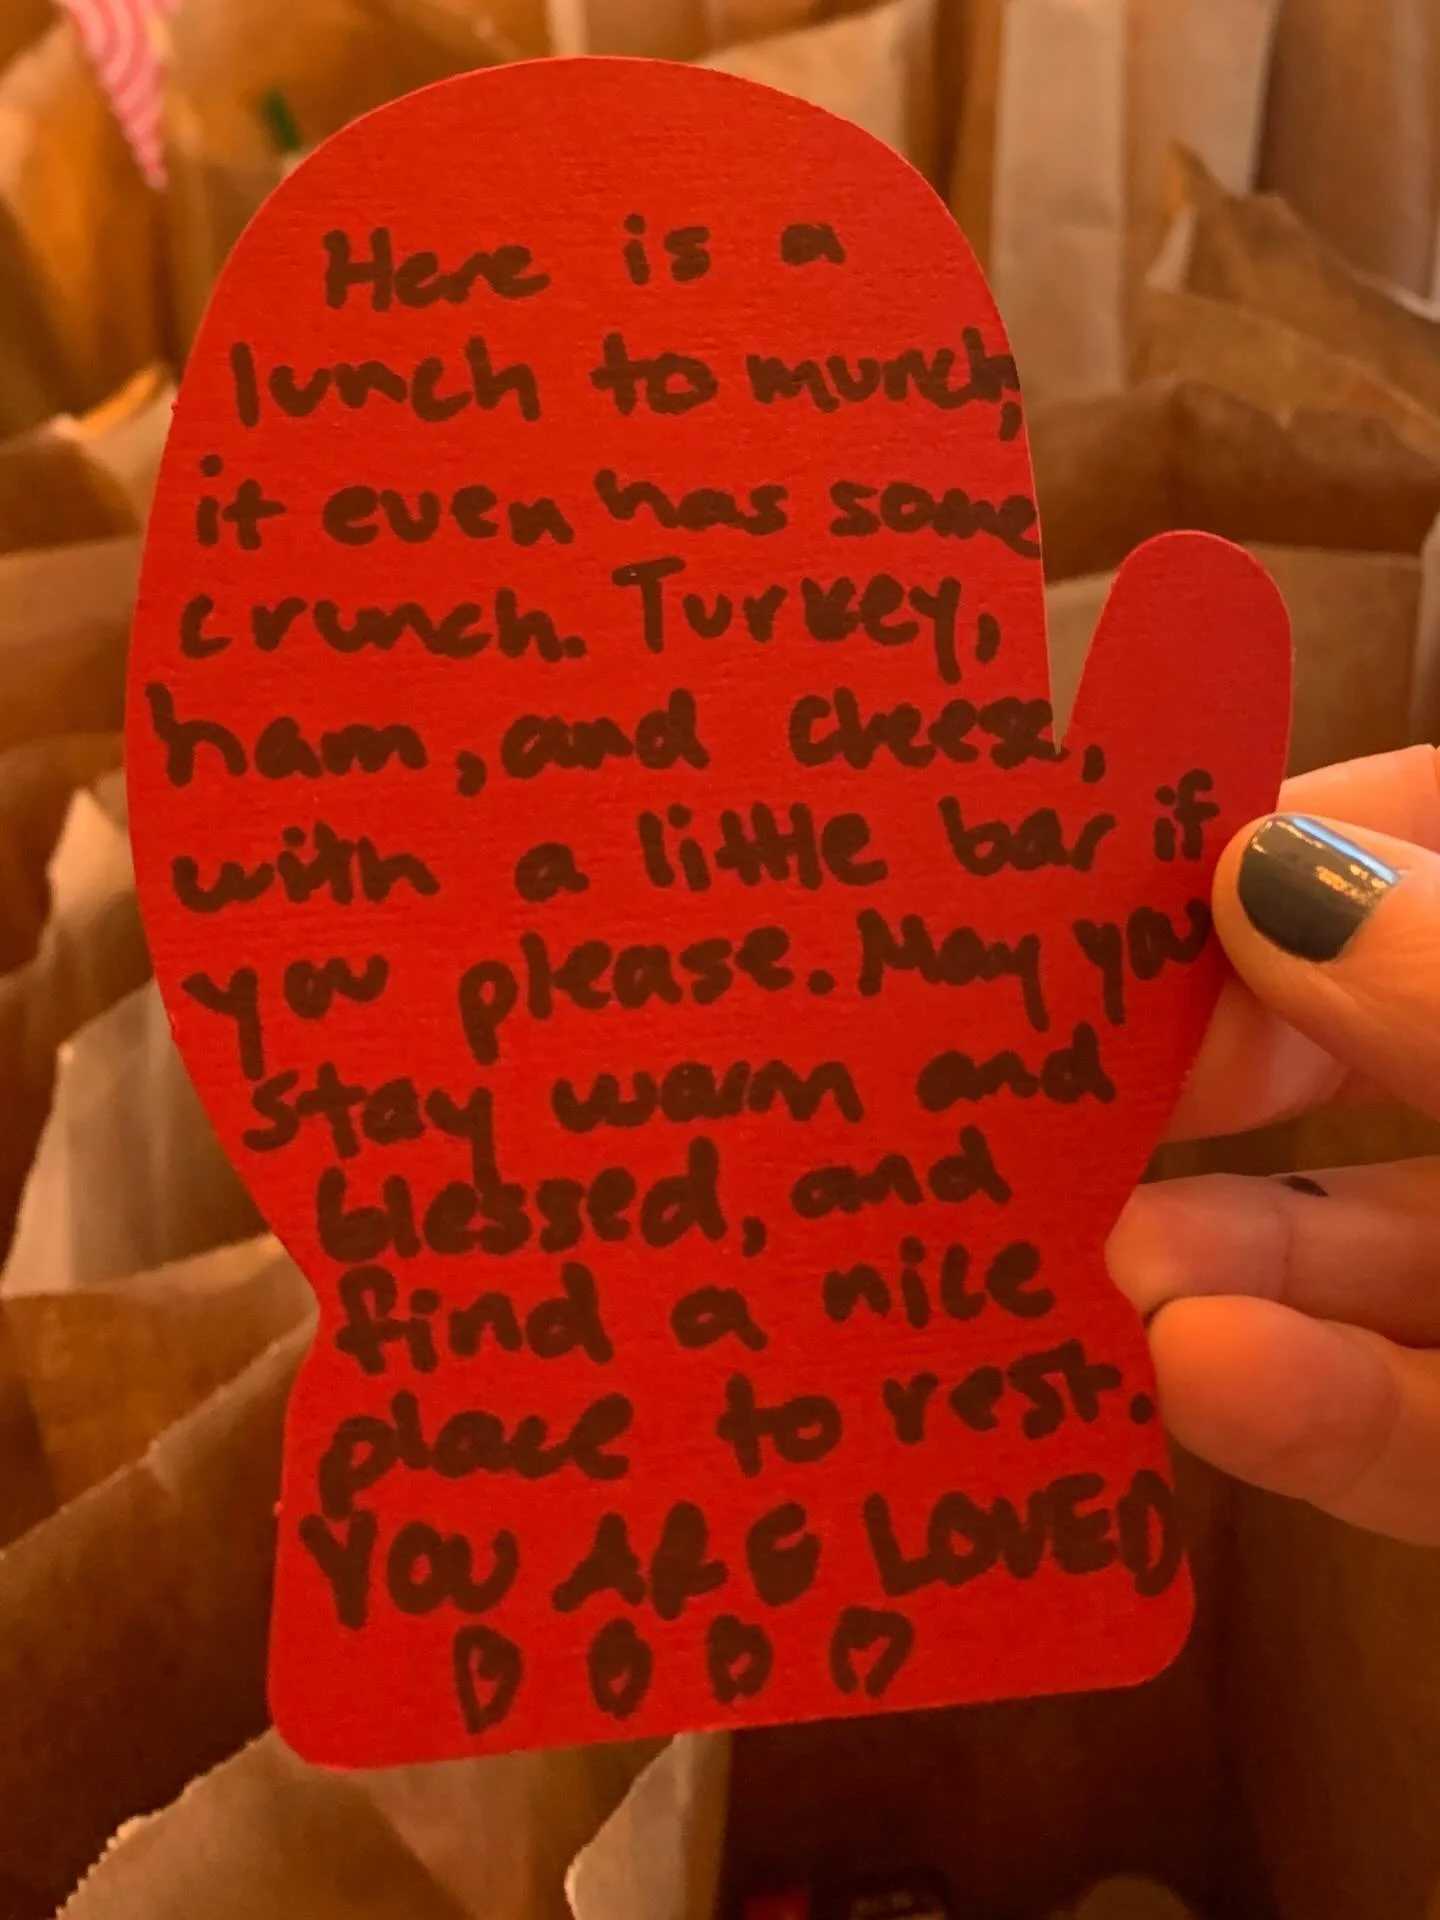 Here is a
lunch to munch,
it even has some
crunch. Turkey,
ham, and cheese,
with a little bar if
you please. May you
stay warm and
blessed, and
find a nice
place to rest.
YOU ARE LOVED